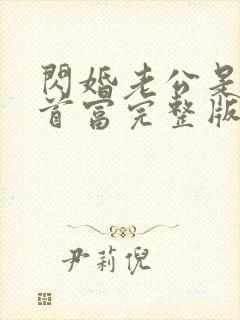 閃婚老公是
首富完整版
尹莉倪